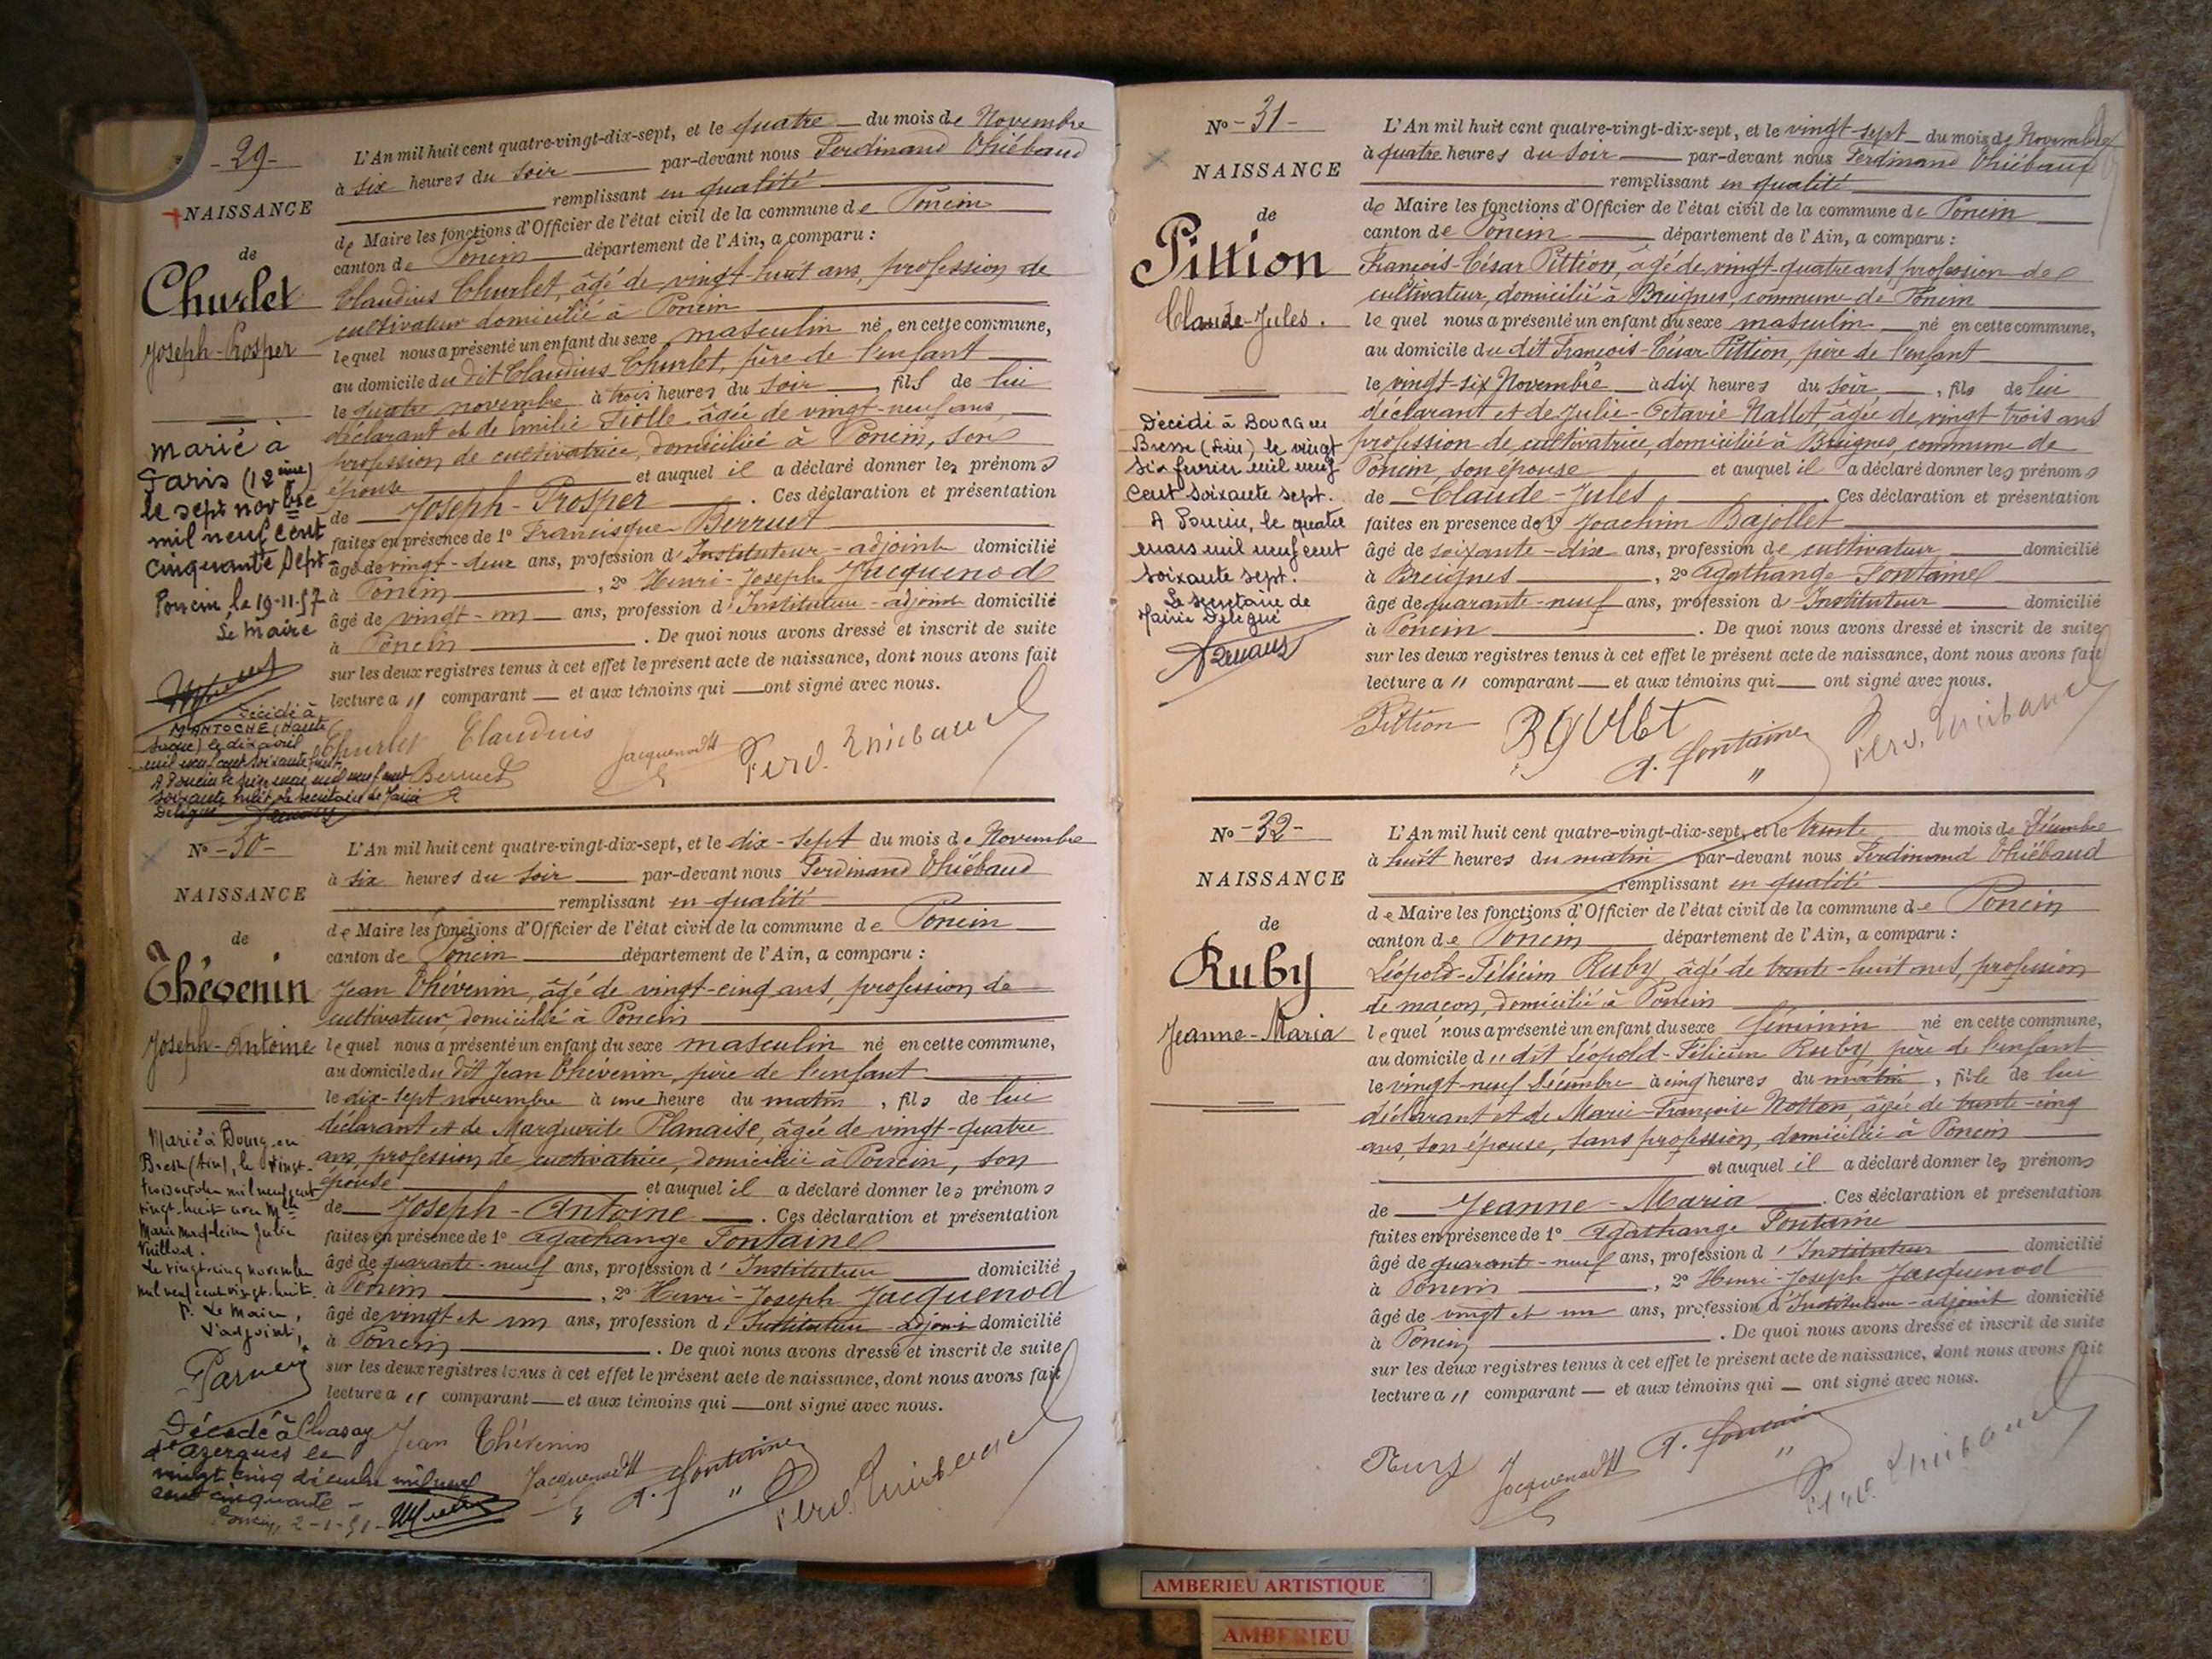 - 29 -
NAISSANCE
de
Churlet
Joseph-Prosper
marié à
Paris (12ème)
le sept novbre
mil neuf cent
cinquante sept
Poncin, le 19-11-57
Le Maire
Décédé à
MANTOCHE (Haute
Saône) le dix avril
mil neuf cent soixante huit
A Poncin le seize mai mil neuf cent
soixante huit Le secrétaire de Mairie
Délégué
L'An mil huit cent quatre-vingt-dix-sept, et le quatre du mois de Novembre
à six heures du soir par-devant nous Ferdinand Thiébaud
remplissant en qualité
de Maire les fonctions d'Officier de l'état civil de la commune de Poncin
canton de Poncin département de l'Ain, a comparu :
Claudius Churlet, âgé de vingt-huit ans, profession de
cultivateur domicilié à Poncin
lequel nous a présenté un enfant du sexe masculin né en cette commune,
au domicile du dit Claudius Churlet, père de l'enfant
le quatre novembre à trois heures du soir, fils de lui
déclarant et de Emilie Fiolle âgée de vingt-neuf ans,
profession de cultivatrice, domiciliée à Poncin, son
épouse et auquel il a déclaré donner les prénoms
de Joseph-Prosper . Ces déclaration et présentation
faites en présence de 1° Francisque Berruet
âgé de vingt-deux ans, profession d'Instituteur-adjoint domicilié
à Poncin , 2° Henri-Joseph Jacquenod
âgé de vingt-un ans, profession d'Instituteur-adjoint domicilié
à Poncin . De quoi nous avons dressé et inscrit de suite
sur les deux registres tenus à cet effet le présent acte de naissance, dont nous avons fait
lecture a u comparant et aux témoins qui ont signé avec nous.
Churlet Claudius
Jacquenod H
Ferd. Thiébaud
Berruet
No - 30 -
NAISSANCE
de
Thévenin
Joseph-Antoine
Marié à Bourg-en
Bresse (Ain), le vingt-
trois octobre mil neuf cent
vingt-huit avec Mlle
Marie Magdeleine Julie
Vuillard.
Le vingt-cinq novembre
mil neuf cent vingt-huit.
P. Le Maire,
L'adjoint,
Décédé à Chasay
d'Azergues le
vingt cinq décembre mil neuf
cent cinquante -
Poncin, 2-1-51-
L'An mil huit cent quatre-vingt-dix-sept, et le dix-sept du mois de Novembre
à six heures du soir par-devant nous Ferdinand Thiébaud
remplissant en qualité
de Maire les fonctions d'Officier de l'état civil de la commune de Poncin
canton de Poncin département de l'Ain, a comparu :
Jean Thévenin, âgé de vingt-cinq ans, profession de
cultivateur, domicilié à Poncin
lequel nous a présenté un enfant du sexe masculin né en cette commune,
au domicile du dit Jean Thévenin, père de l'enfant
le dix-sept novembre à une heure du matin, fils de lui
déclarant et de Marguerite Planaise, âgée de vingt-quatre
ans, profession de cultivatrice, domiciliée à Poncin, son
épouse et auquel il a déclaré donner les prénoms
de Joseph-Antoine . Ces déclaration et présentation
faites en présence de 1° Agathange Fontaine
âgé de quarante-neuf ans, profession d'Instituteur domicilié
à Poncin , 2° Henri-Joseph Jacquenod
âgé de vingt et un ans, profession d'Instituteur-adjoint domicilié
à Poncin . De quoi nous avons dressé et inscrit de suite
sur les deux registres tenus à cet effet le présent acte de naissance, dont nous avons fait
lecture a u comparant et aux témoins qui ont signé avec nous.
Jean Thévenin
Jacquenod H
A. Fontaine
Ferd. Thiébaud
No - 31 -
NAISSANCE
de
Pittion
Claude-Jules.
Décédé à Bourg en
Bresse (Ain) le vingt
six février mil neuf
cent soixante sept.
A Poncin, le quatre
mars mil neuf cent
soixante sept.
Le secrétaire de
Mairie Délégué
L'An mil huit cent quatre-vingt-dix-sept, et le vingt-sept du mois de Novembre
à quatre heures du soir par-devant nous Ferdinand Thiébaud
remplissant en qualité
de Maire les fonctions d'Officier de l'état civil de la commune de Poncin
canton de Poncin département de l'Ain, a comparu :
François-César Pittion, âgé de vingt-quatre ans, profession de
cultivateur, domicilié à Breignes, commune de Poncin
le quel nous a présenté un enfant du sexe masculin né en cette commune,
au domicile du dit François-César Pittion, père de l'enfant
le vingt-six Novembre à dix heures du soir, fils de lui
déclarant et de Julie-Octavie Nallet, âgée de vingt trois ans
profession de cultivatrice, domiciliée à Breignes, commune de
Poncin, son épouse et auquel il a déclaré donner les prénoms
de Claude-Jules . Ces déclaration et présentation
faites en présence de 1° Joachim Bajollet
âgé de soixante-dix ans, profession de cultivateur domicilié
à Breignes , 2° Agathange Fontaine
âgé de quarante-neuf ans, profession d'Instituteur domicilié
à Poncin . De quoi nous avons dressé et inscrit de suite
sur les deux registres tenus à cet effet le présent acte de naissance, dont nous avons fait
lecture a u comparant et aux témoins qui ont signé avec nous.
Pittion
A. Fontaine
Ferd. Thiébaud
No - 32 -
NAISSANCE
de
Ruby
Jeanne-Maria
L'An mil huit cent quatre-vingt-dix-sept, et le trente du mois de Décembre
à huit heures du matin par-devant nous Ferdinand Thiébaud
remplissant en qualité
de Maire les fonctions d'Officier de l'état civil de la commune de Poncin
canton de Poncin département de l'Ain, a comparu :
Léopold-Félicien Ruby, âgé de trente-huit ans, profession
de maçon, domicilié à Poncin
lequel nous a présenté un enfant du sexe féminin né en cette commune,
au domicile du dit Léopold-Félicien Ruby, père de l'enfant
le vingt-neuf Décembre à cinq heures du matin, fille de lui
déclarant et de Marie-Françoise Notton, âgée de trente-cinq
ans, son épouse, sans profession, domiciliée à Poncin
et auquel il a déclaré donner les prénoms
de Jeanne-Maria . Ces déclaration et présentation
faites en présence de 1° Agathange Fontaine
âgé de quarante-neuf ans, profession d'Instituteur domicilié
à Poncin , 2° Henri-Joseph Jacquenod
âgé de vingt et un ans, profession d'Instituteur-adjoint domicilié
à Poncin . De quoi nous avons dressé et inscrit de suite
sur les deux registres tenus à cet effet le présent acte de naissance, dont nous avons fait
lecture a u comparant et aux témoins qui ont signé avec nous.
Ruby
Jacquenod H
A. Fontaine
Ferd. Thiébaud
AMBERIEU ARTISTIQUE
AMBERIEU